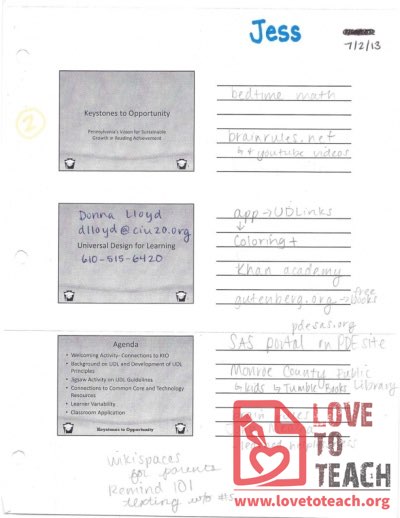 Jess
7/2/13
2
Keystones to Opportunity
Pennsylvania's Vision for Sustainable
Growth in Reading Achievement
bedtime math
brainrules.net
↳ youtube videos
Donna Lloyd
dlloyd@ciu20.org
Universal Design for Learning
610-515-6420
app → UDLinks
Coloring +
Khan academy
gutenberg.org → free books
pdesas.org
SAS portal on PDE site
Agenda
• Welcoming Activity- Connections to KtO
• Background on UDL and Development of UDL
Principles
• Jigsaw Activity on UDL Guidelines
• Connections to Common Core and Technology
Resources
• Learner Variability
• Classroom Application
Keystones to Opportunity
Monroe County Public Library
↳ kids ↳ Tumble Books
wikispaces
for parents
Remind 101
texting w/o #s
LOVE
TO
TEACH
www.lovetoteach.org